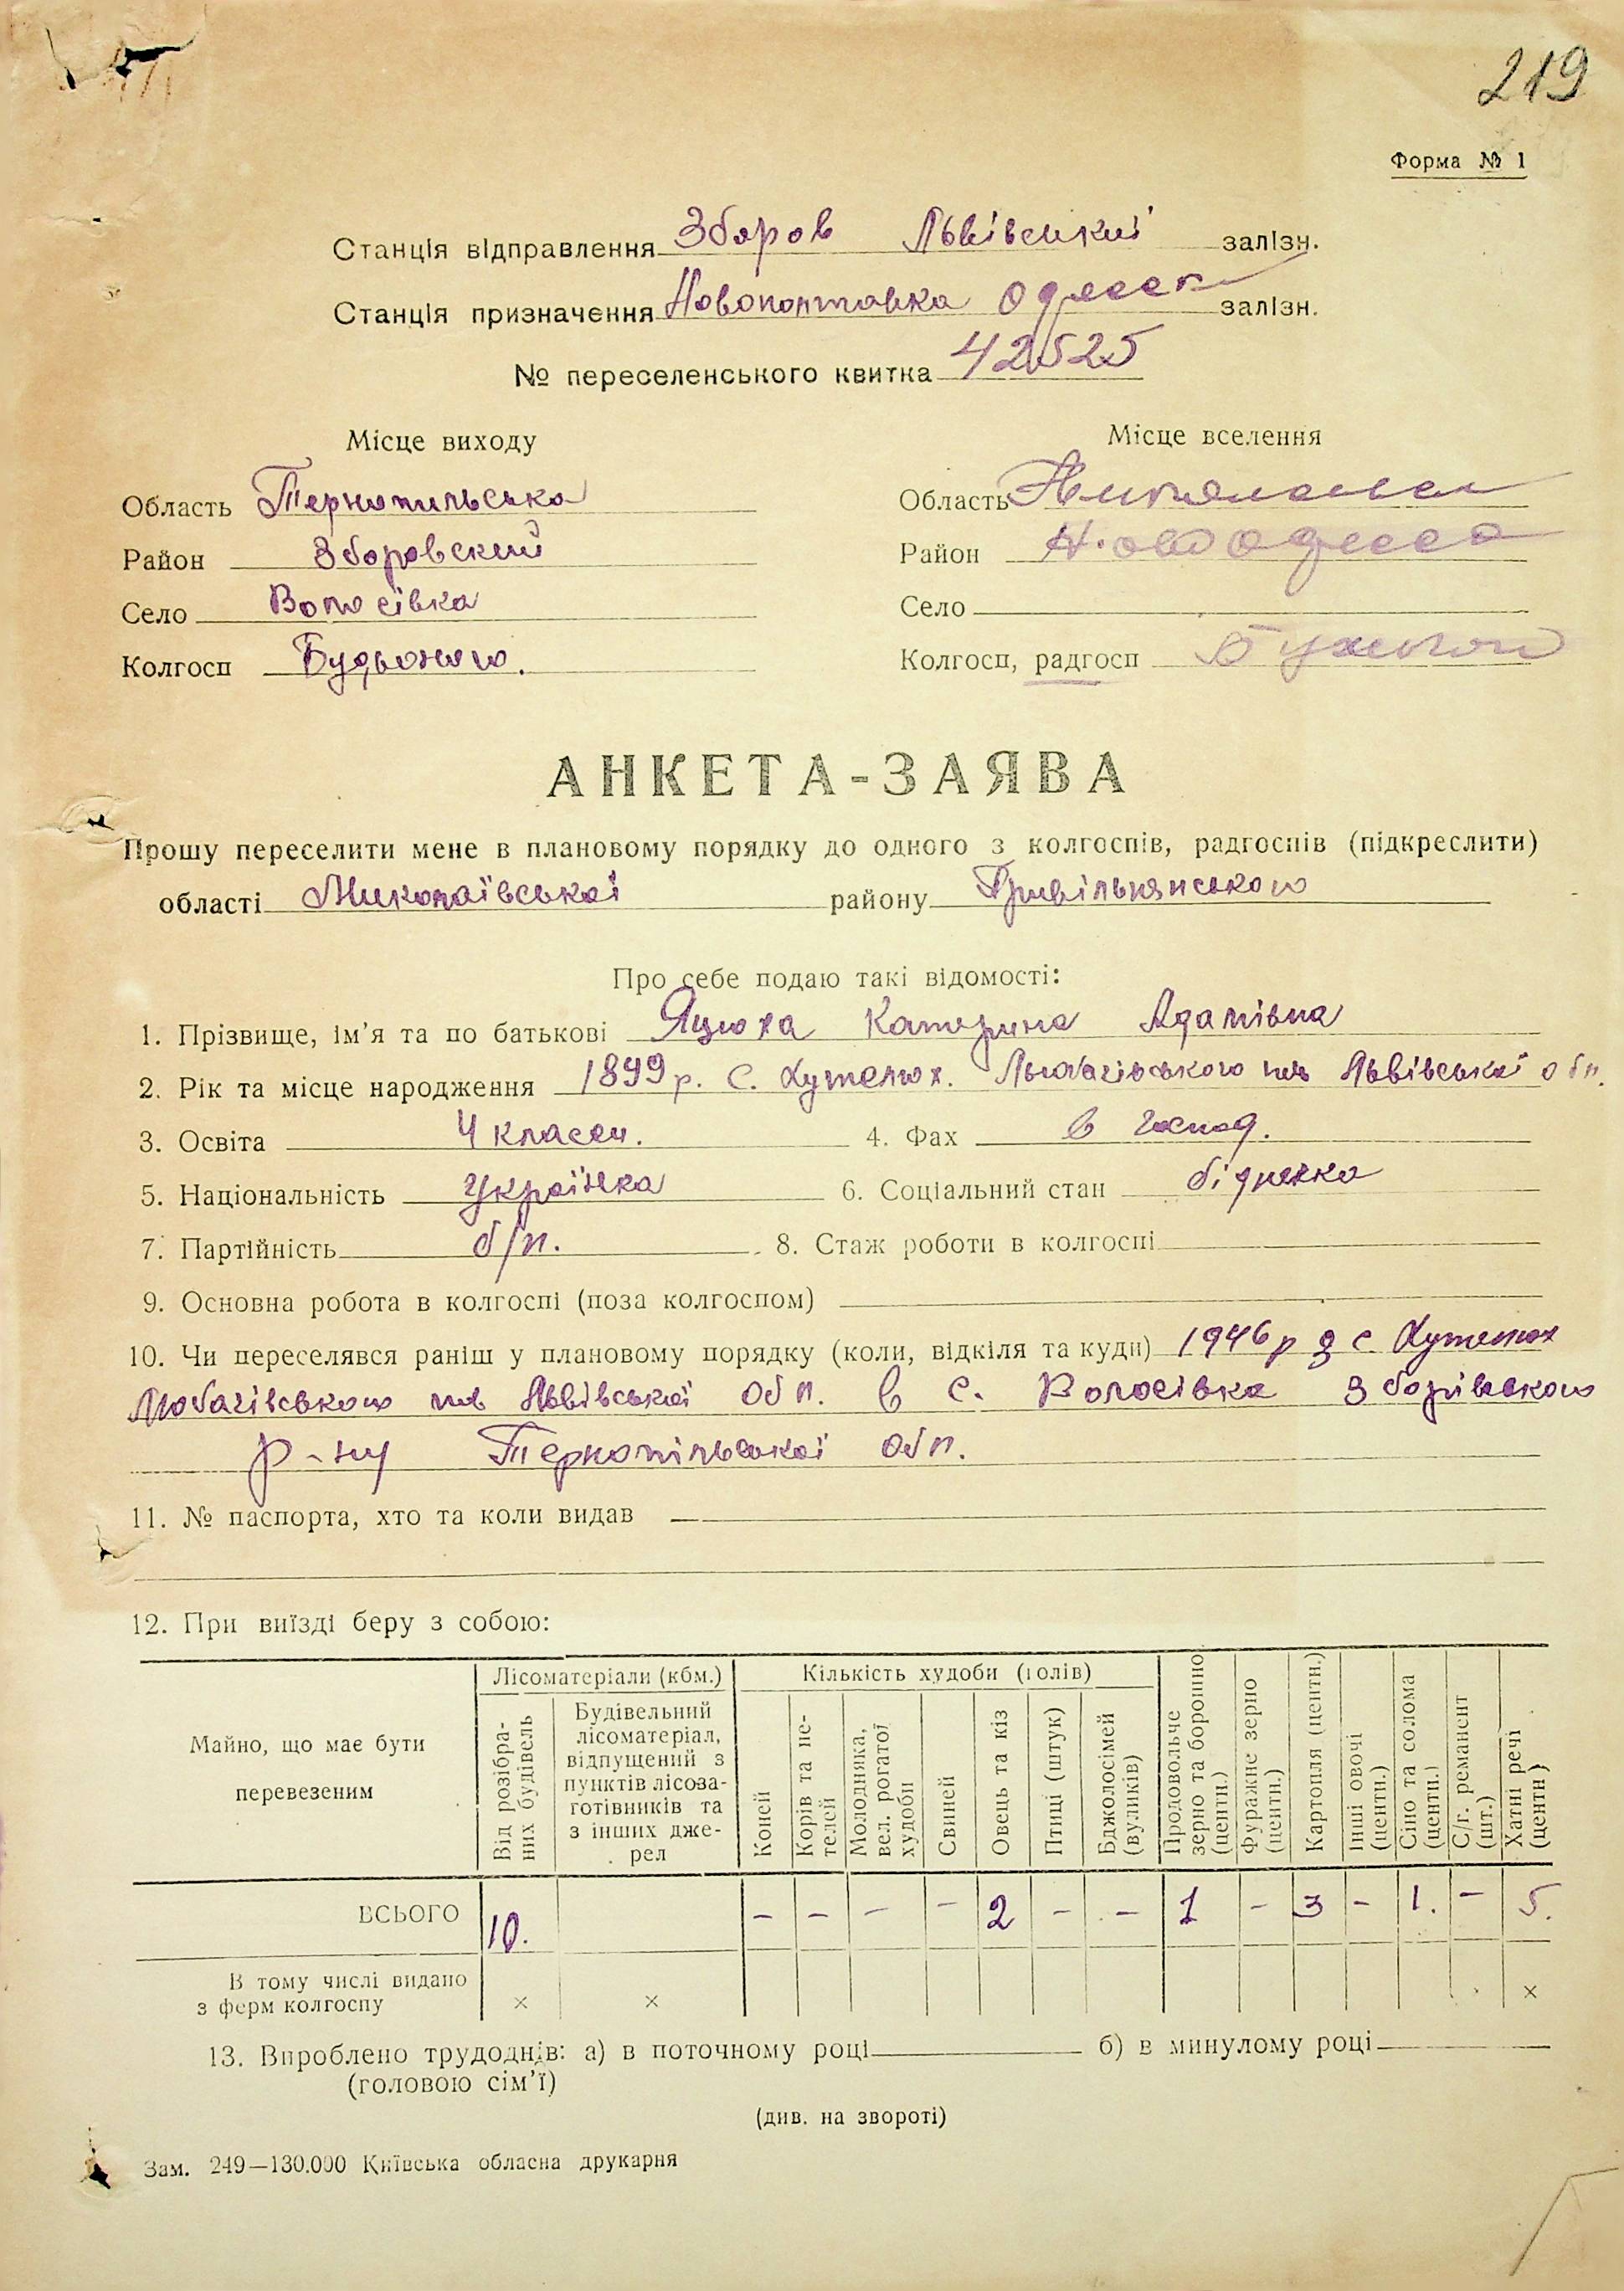 219
Форма № 1
Станція відправлення Зборов Львівський залізн.
Станція призначення Новополтавка Одеськ залізн.
№ переселенського квитка 42525
Місце виходу
Місце вселення
Область Тернопильська
Область Николаевская
Район Зборовский
Район Н. Одесса
Село Волосівка
Село
Колгосп Будьоного.
Колгосп, радгосп
АНКЕТА-ЗАЯВА
Прошу переселити мене в плановому порядку до одного з колгоспів, радгоспів (підкреслити)
області Миколаївської району Привільнянського
Про себе подаю такі відомості:
1. Прізвище, ім’я та по батькові Яцюха Катерина Адамівна
2. Рік та місце народження 1899 р. С. Любачівського Львівської обл.
3. Освіта 4 класи. 4. Фах в господ.
5. Національність Українка 6. Соціальний стан біднячка
7. Партійність б/п. 8. Стаж роботи в колгоспі
9. Основна робота в колгоспі (поза колгоспом)
10. Чи переселявся раніш у плановому порядку (коли, відкіля та куди) 1946 р з с
Любачівського Львівської обл. в с. Волосівка Зборівського
р-ну Тернопільської обл.
11. № паспорта, хто та коли видав —
12. При виїзді беру з собою:
Майно, що має бути перевезеним
Лісоматеріали (кбм.)
Від розібра-
них будівель
Будівельний
лісоматеріал,
відпущений з
пунктів лісоза-
готівників та
з інших дже-
рел
Кількість худоби (голів)
Коней
Корів та не-
телей
Молодняка,
вел. рогатої
худоби
Свиней
Овець та кіз
Птиці (штук)
Бджолосімей
(вуликів)
Продовольче
зерно та борошно
(центн.)
Фуражне зерно
(центн.)
Картопля (центн.)
Інші овочі
(центн.)
Сіно та солома
(центн.)
С/г. реманент
(шт.)
Хатні речі
(центн)
ВСЬОГО 10. – – – – 2 – – 1 – 3 – 1. – 5.
В тому числі видано
з ферм колгоспу × × ×
13. Вироблено трудоднів: а) в поточному році б) в минулому році
(головою сім’ї)
(див. на звороті)
Зам. 249—130.000 Київська обласна друкарня